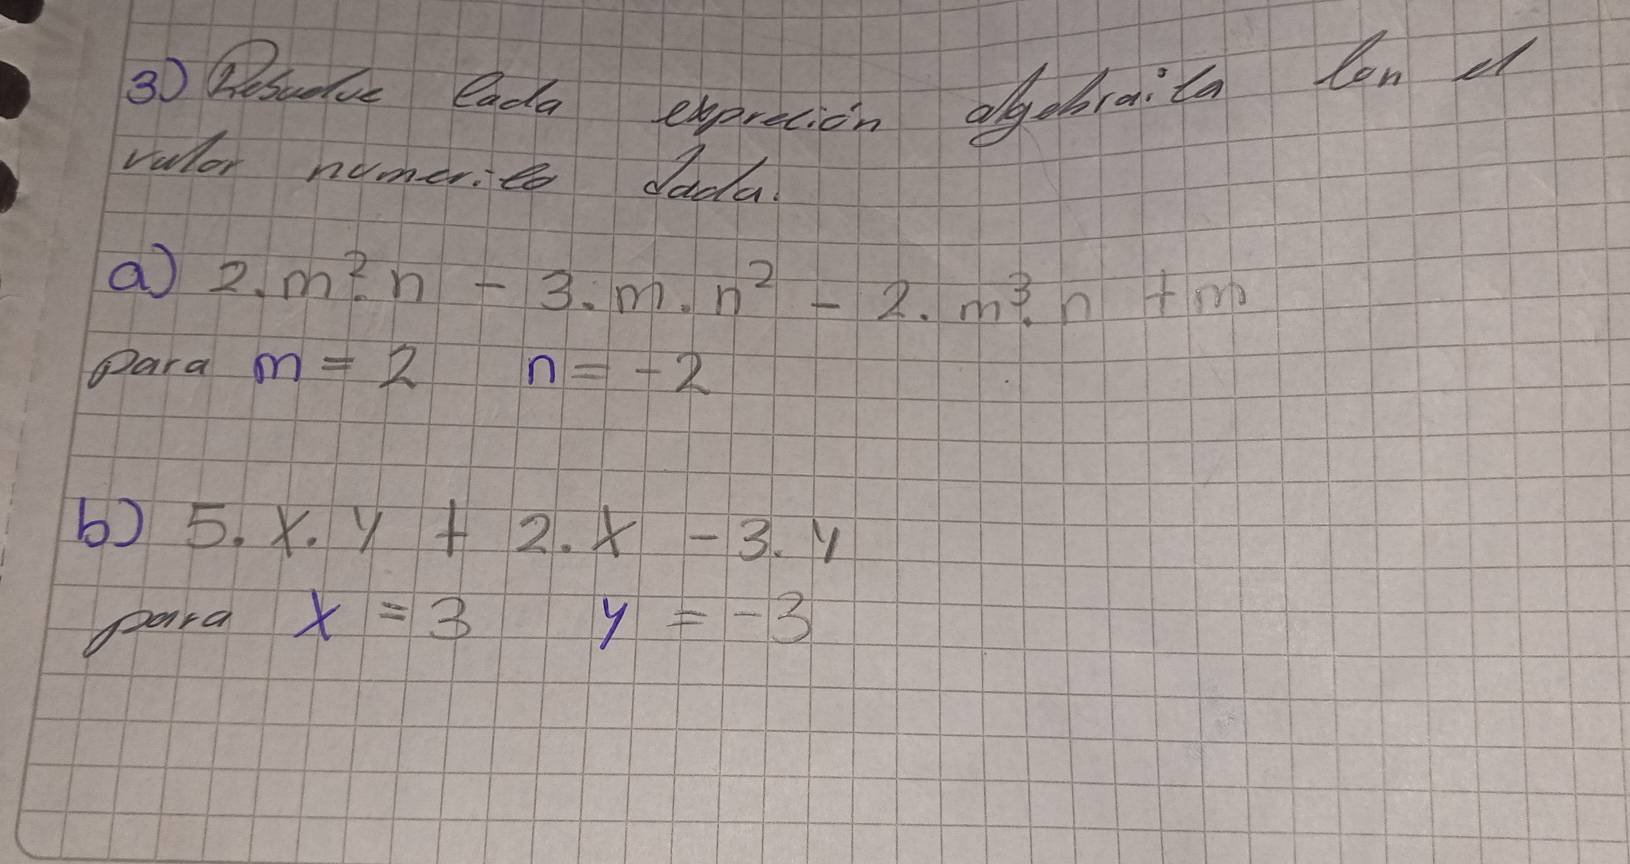 3) Resuelve cada expreción algebraica con el
valor numerico dada.
a) 2.m².n - 3.m.n² - 2.m³.n + m
para m = 2 n = -2
b) 5.x.y + 2.x - 3.y
para x = 3 y = -3